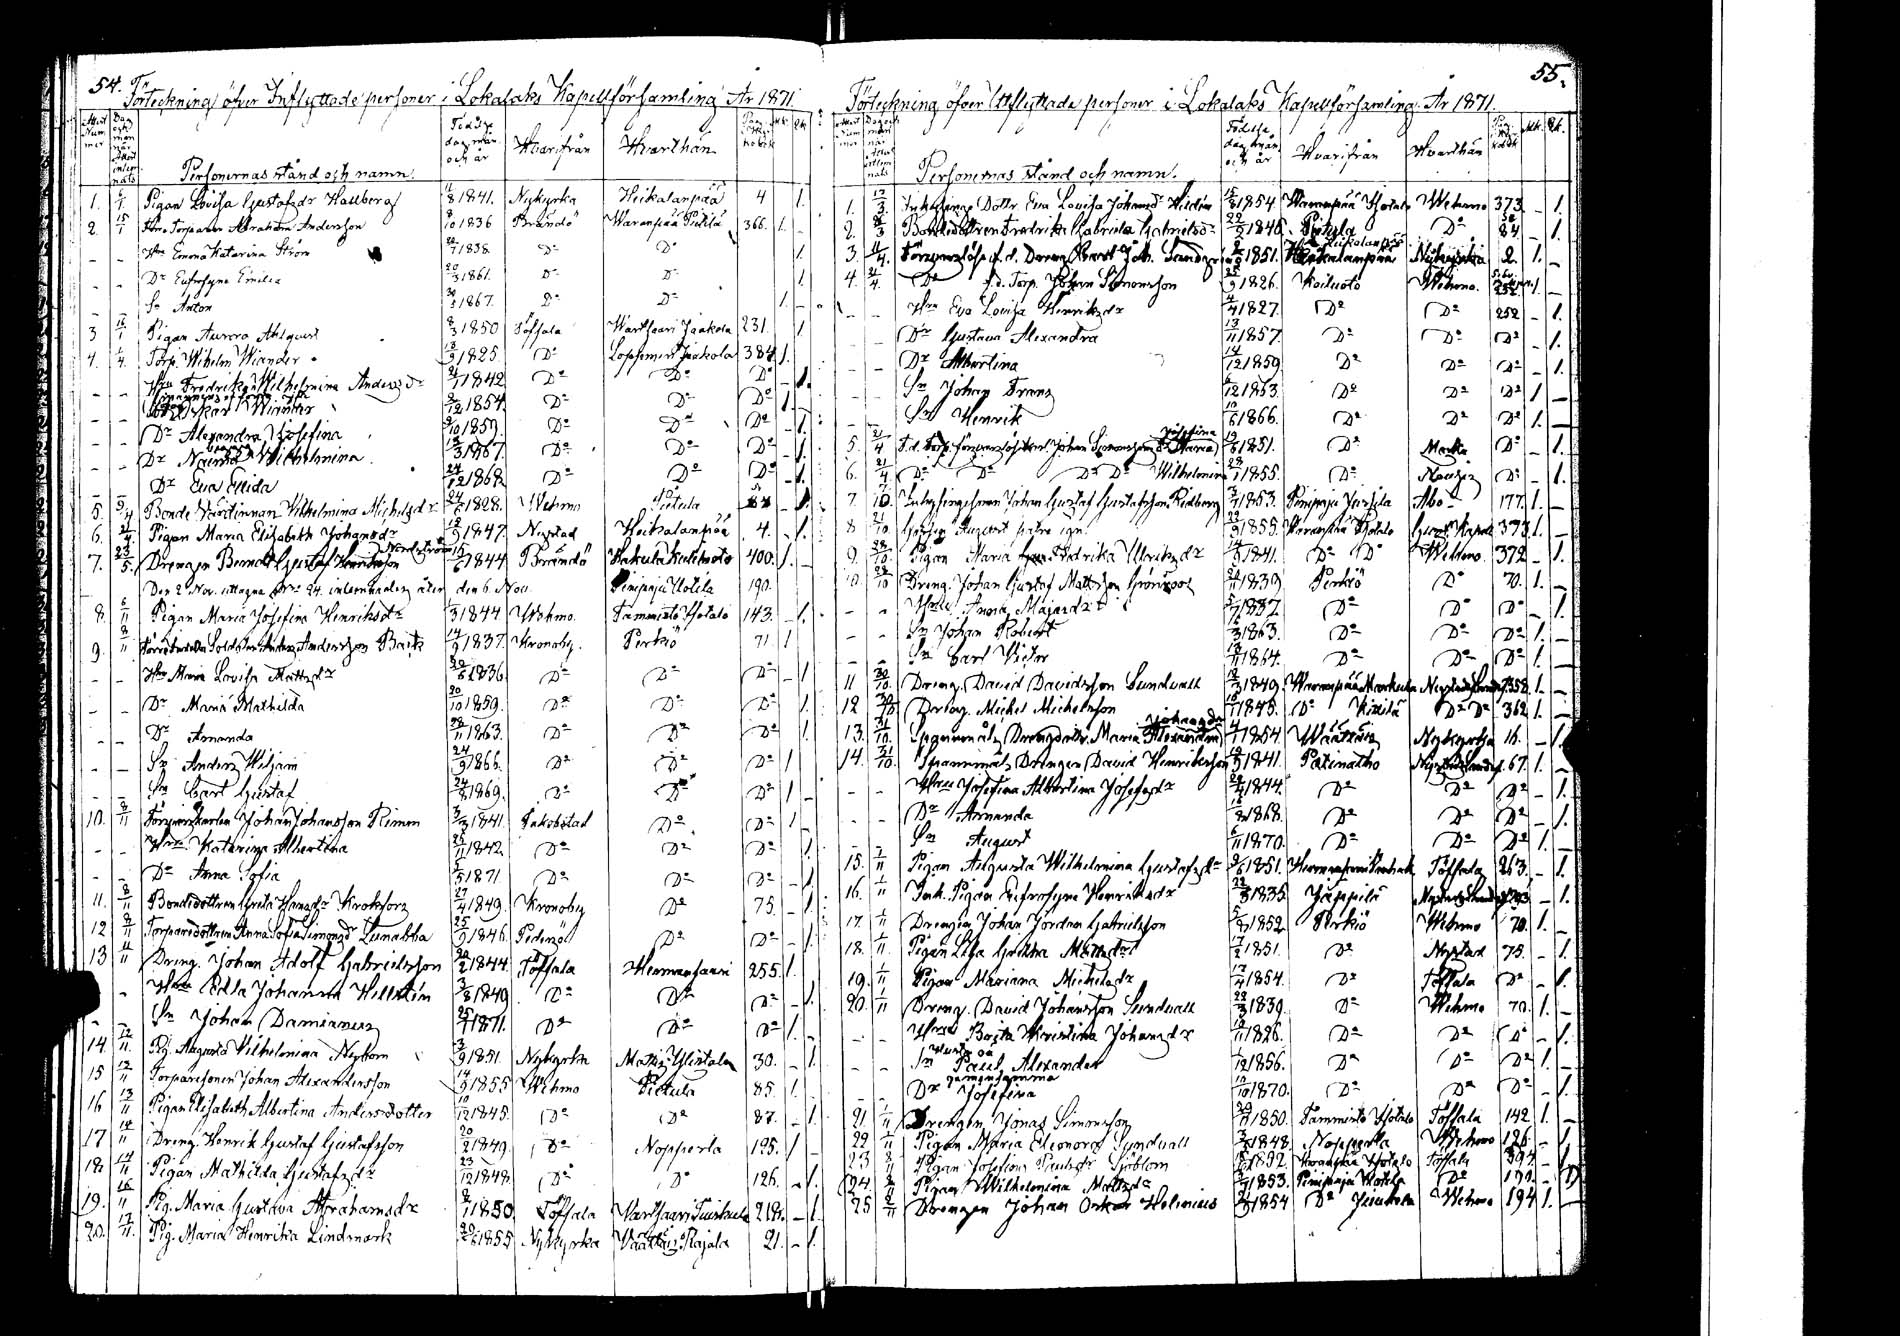 54. Förteckning öfver Inflyttade personer i Lokalaks Kapellförsamling År 1871.
Attest Nummer Dag och mån när Attest inlemnats Personernas stånd och namn. Födelse dag mån och år Hvarifrån Hvarthän Pag. i Ky. bok Mk. Qk.
1. 6/1. Pigan Lovisa Gustafsdr Hallberg 11/8 1841. Nykyrka Heikalanpää 4 1.
2. 15/1 Torparen Abraham Andersson 8/10 1836 Brändö Waranpää Pietilä 366. 1.
_ _ Hru Emma Katarina Ström 24/7 1838. Do Do 1.
_ _ Dr Eufrosyne Emilia 20/3 1861. Do Do 1.
_ _ Sn Anton 1867. Do Do 1.
3 16/1 Pigan Aurora Ahlqvist 8/3 1850 Töfsala Wartsaari Jaakola 231. 1
4. 1/4. Torp. Wilhelm Wiander 13/9 1825. Do Loppimes Jaakola 384 1.
_ _ Hru Fredrika Wilhelmina Andersdr 21/1 1842 Do Do Do 1.
_ _ Oskar Wiander 2/12 1854. Do Do Do 1
_ _ Dr Alexandra Josefina 9/10 1857. Do Do Do 1.
_ _ Dr Naima Wilhelmina 18/3 1867. Do Do Do 1.
_ _ Dr Eva Elida 24/12 1868 Do Do Do 1.
5. 5/4 Bonde Värdinnan Wilhelmina Michelsdr 24/5 1828. Wehmo Pietula 84 1.
6. 21/4 Pigan Maria Elisabeth Johansdr 18/9 1847. Nystad Heikalanpää 4. 1.
7. 23/5. Drengen Berndt Gustaf Henriksson Nordström 1844 Brändö Kukula Kulmoto 400. 1.
Den 2 Nov. uttagna No 24. inlemnades åter den 6 Nov. Pinipaju Uotila 190.
8. 6/11 Pigan Maria Josefina Henriksdr 1/3 1844 Wehmo. Tammisto Ylotalo 143. 1.
9. 8/11 Soldaten Anders Andersson Bask 14/9 1837. Kronoby. Perkiö 71. 1
_ _ Hru Maria Lovisa Mattsdr 1836 Do Do Do 1
_ _ Dr Maria Mathilda 20/10 1859. Do Do Do 1.
_ _ Dr Amanda 28/11 1863. Do Do Do 1.
_ _ Sn Anders Wiljam 24/9 1866. Do Do Do 1
_ _ Sn Carl Gustaf 24/8 1869. Do Do Do 1
10. 8/11 Johan Johansson Rimon 3/3 1841. Jakobstad Do Do 1
_ _ Hru Katarina Albertina 25/11 1842 Do Do Do 1.
_ _ Dr Anna Sofia 5/5 1871 Do Do Do 1
11. 8/11 Bondedottren Greta Hansdr Krokfors 27/4 1849. Kronoby Do 75. 1.
12 8/11 Torparedottren Anna Sofia Simonsdr Lunabba 25/9 1846. Pedersö Do Do 1.
13 11/11 Dreng. Johan Adolf Gabrielsson 20/2 1844. Töfsala Hermansaari 255. 1.
_ Hru Edla Johanna Hellstén 3/8 1849 Do Do Do 1.
_ _ Sn Johan Daminneus 25/7 1871. Do Do Do 1.
14. 12/11. Pig. Augusta Wilhelmina Nybom 3/9 1851. Nykyrka Matis Ylistalo 30. 1.
15 13/11 Torparesonen Johan Alexandersson 14/9 1855 Wehmo Pietula 85. 1.
16 13/11 Pigan Elisabeth Albertina Andersdotter 10/12 1845. Do Do 87. 1
17 14/11 Dreng. Henrik Gustaf Gustafsson 20/2 1849. Do Nopperla 125. 1
18. 14/11 Pigan Mathilda Gustafsdr 23/12 1848. Do Do 126. 1
19. 16/11 Pig. Maria Gustava Abrahamsdr 8/1 1850. Töfsala Wartsaari Tuiskula 218. 1.
20. 17/11. Pig. Maria Henrika Lindmark 20/6 1855 Nykyrka Wäättäis Rajala 21. 1.
55.
Förteckning öfver Utflyttade personer i Lokalaks Kapellförsamling År 1871.
Personernas stånd och namn. Födelse dag mån och år Hvarifrån Hvarthän Mk. Qk.
1. 13/3. Inhysinge Dottr. Eva Lovisa Johansdr Widén 15/8 1854 Waranpää Ylotalo Wehmo 373 1.
2. 8/3 Bondedottren Fredrika Gabriela Gabrielsdr 22/5 1846. Pietula Do 84. 1.
3. 11/4. Försvarslöse f.d. Dreng Evert Joh. Sandgren 1851. Heikalanpää Nykyrka 2. 1.
4. 21/4 Do f.d. Torp. Johan Simonsson 25/9 1826. Koiluoto Wehmo. 252. 1.
_ _ Hru Eva Lovisa Henriksdr 4/4 1827. Do Do 252 1.
_ _ Dr Gustava Alexandra 13/11 1857. Do Do Do 1.
_ _ Dr Albertina 14/12 1859 Do Do Do 1.
_ _ Sn Johan Frans 12 1863. Do Do Do 1
_ _ Sn Henrik 10/6 1866. Do Do Do 1.
5. 21/4 f.d. Torp. försvarslöse Johan Simonsson Josefina Maria 19/8 1851. Do Do 1.
6. 21/4 Do Do Do Do Wilhelmina 28/1 1855. Do Do 1
7. 7/10. Inhysingesonen Johan Gustaf Gustafsson Ridberg 3/7 1853. Pinipaju Jussila Åbo 177. 1.
8 21/10 August 22/9 1855. Waranpää Ylotalo 373 1.
9. 28/10. Pigan Maria Fredrika Ulriksdr 14/3 1841. Do Do Wehmo. 372 1.
10. 28/10 Dreng. Johan Gustaf Mattsson Grönroos 21/11 1839 Perkiö Do 70. 1.
_ _ Hru Anna Majasdr 1837. Do Do Do 1.
_ _ Sn Johan Robert 16/3 1863. Do Do Do 1.
_ _ Sn Carl Victor 13/11 1864. Do Do Do 1.
11 30/10. Dreng. David Davidsson Sundvall 12/3 1849. Waranpää Markula 358. 1.
12 30/10 Dreng. Michel Michelsson 16/1 1845. Do Kivilä Do Do 362 1.
13. 31/10. Spannmåls Drengedottr. Maria Alexandra Johansdr 4/1 1854 Wäättäis Nykyrka 16. 1.
14. 31/10. Spannmåls Drengen David Henriksson 19/5 1841. Patinatho 67. 1.
_ _ Hru Josefina Albertina Josefsdr 29/4 1844. Do Do Do 1
_ _ Dr Amanda 16/2 1868. Do Do Do 1.
_ _ Sn August 6/11 1870. Do Do Do 1.
15. 1/11 Pigan Augusta Wilhelmina Gustafsdr 9/6 1851. Töfsala 263. 1.
16. 1/11 Inh. Pigan Eufrosyne Henriksdr 22/3 1835 Jäppilä 1.
17. 1/11 Drengen Johan Jordan Gabrielsson 5/9 1852 Perkiö Wehmo 70. 1.
18. 1/11 Pigan Lisa Gustava Mattsdr 17/2 1851. Do Nystad 75. 1
19. 1/11 Pigan Mariana Michelsdr 17/4 1854. Do Töfsala Do 1.
20. 1/11 Dreng. David Johansson Sundvall 23/3 1839. Do Wehmo 70. 1.
_ _ Hru Brita Kristina Johansdr 18/11 1826. Do Do Do 1.
_ _ Sn Paul Alexander 1/12 1856. Do Do Do 1.
_ _ Dr Josefina 10/10 1870. Do Do Do 1.
21. 1/11 Drengen Jonas Simonsson 1850. Tammisto Ylotalo Töfsala 142 1.
22 1/11 Pigan Maria Eleonora Sundvall 1848. Nopperla Wehmo 126. 1
23 8/11 Pigan Josefina Paulsdr Sjöblom 1832. Waranpää Ylotalo Töfsala 394. 1
24. 2/11 Pigan Wilhelmina Mattsdr 1853. Pinipaju Uotila Do 190. 1)
25 2/11 Drengen Johan Oskar Helenius 1854 Do Juukola Wehmo 194 1.